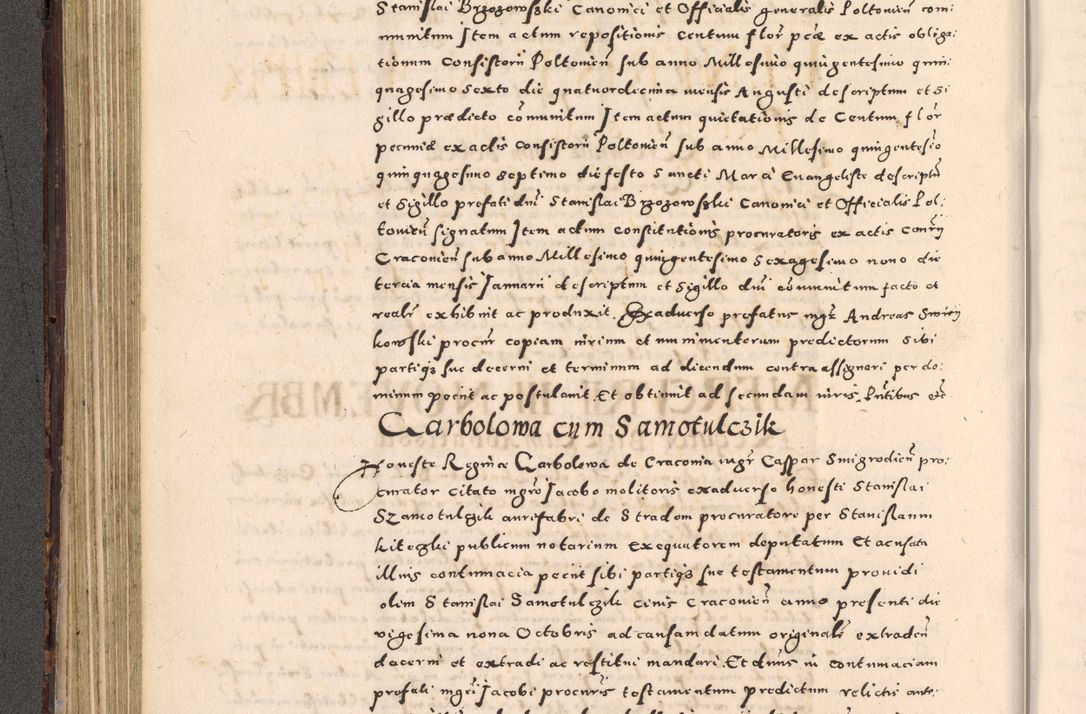 Stanislai Brzozowski Canonici et Officialis generalis Poltovień com:
munitum Item actum repositionis centum flor̃ pcæ ex actis obliga:
tionum Consistorii Poltovień sub anno Millesimo quingentesimo quin:
quagesimo sexto die quatuordecima mensis Augusti descriptum et si
gillo prædicto cõmunitum Item actum quietationis de Centum flor̃
pecuniæ ex actis Consistorii Poltovień sub anno Millesimo quingentesĩo
quinquagesimo septimo die festo Sancti Marci Evangeliste descriptũ
et sigillo prefati dñi Stanislai Brzozowski Canonici et Officialis Pol:
tovień signatum Item actum constitutionis procuratoris ex actis
Cracovień sub anno Millesimo quingentesimo sexagesimo nono die
tercia mensis Januarii descriptum et sigillo dñi communitum facto et
realr̃ exhibuit ac produxit. Exadverso prefatus mgr̃ Andreas
kowski procur̃ copiam iurium et munimentorum predictorum sibi
partiq3 sue decerni et terminum ad dicendum contra assignari per do:
minum pecüt ac postulavit. Et obtinuit ad secundam iuris. Pñtibus etc̃
Garbolowa cum Samotulczik
Honeste Reginæ Garbolowa de Cracovia mgr̃ Caspar Smigrodień pro:
curator citato mgrõ Jacobo molitoris exadverso honesti Stanislai
Szamotulczik aurifabri de Stradom procuratore per Stanislaum
publicum notarium exequutorem deputatum Et acusata
illius contumacia peciit sibi partiq3 sue testamentum providi
olim Stanislai Samotulczik civis Cracovień anno presenti die
vigesima nona Octobris ad causam datum originalr̃ extradeñ
decerni et extradi ac restitui mandari. Et dnus in contumaciam
prefati mgri Jacobi procurĩs testamentum predictum relictis